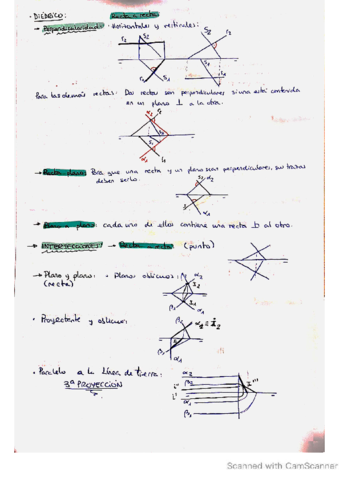 · DIÉDRICO: Recta a recta
→ Perpendicularidad: · Horizontales y verticales:
r₂ s₂ s₂ r₂
r₁ s₁
Para las demás rectas: Dos rectas son perpendiculares si una está contenida
en un plano ⊥ a la otra.
α₂ r₂
s₁
α₁ r₁
→ Recta plano: Para que una recta y un plano sean perpendiculares, sus trazas
deben serlo.
s₂ α₂
α₁
→ Plano a plano: cada uno de ellos contiene una recta ⊥ al otro.
→ INTERSECCIONES: → Recta a recta (punto)
→ Plano y plano: · Planos oblicuos:
(recta)
β₂ α₂
β₁ α₁
· Proyectante y oblicuo:
β₂ α₂ ≡ i₂
β₁ α₁
· Paralelo a la línea de tierra:
3ª PROYECCIÓN
α₂
β₂
i''
i'
α₁
β₁
i'''
Scanned with CamScanner